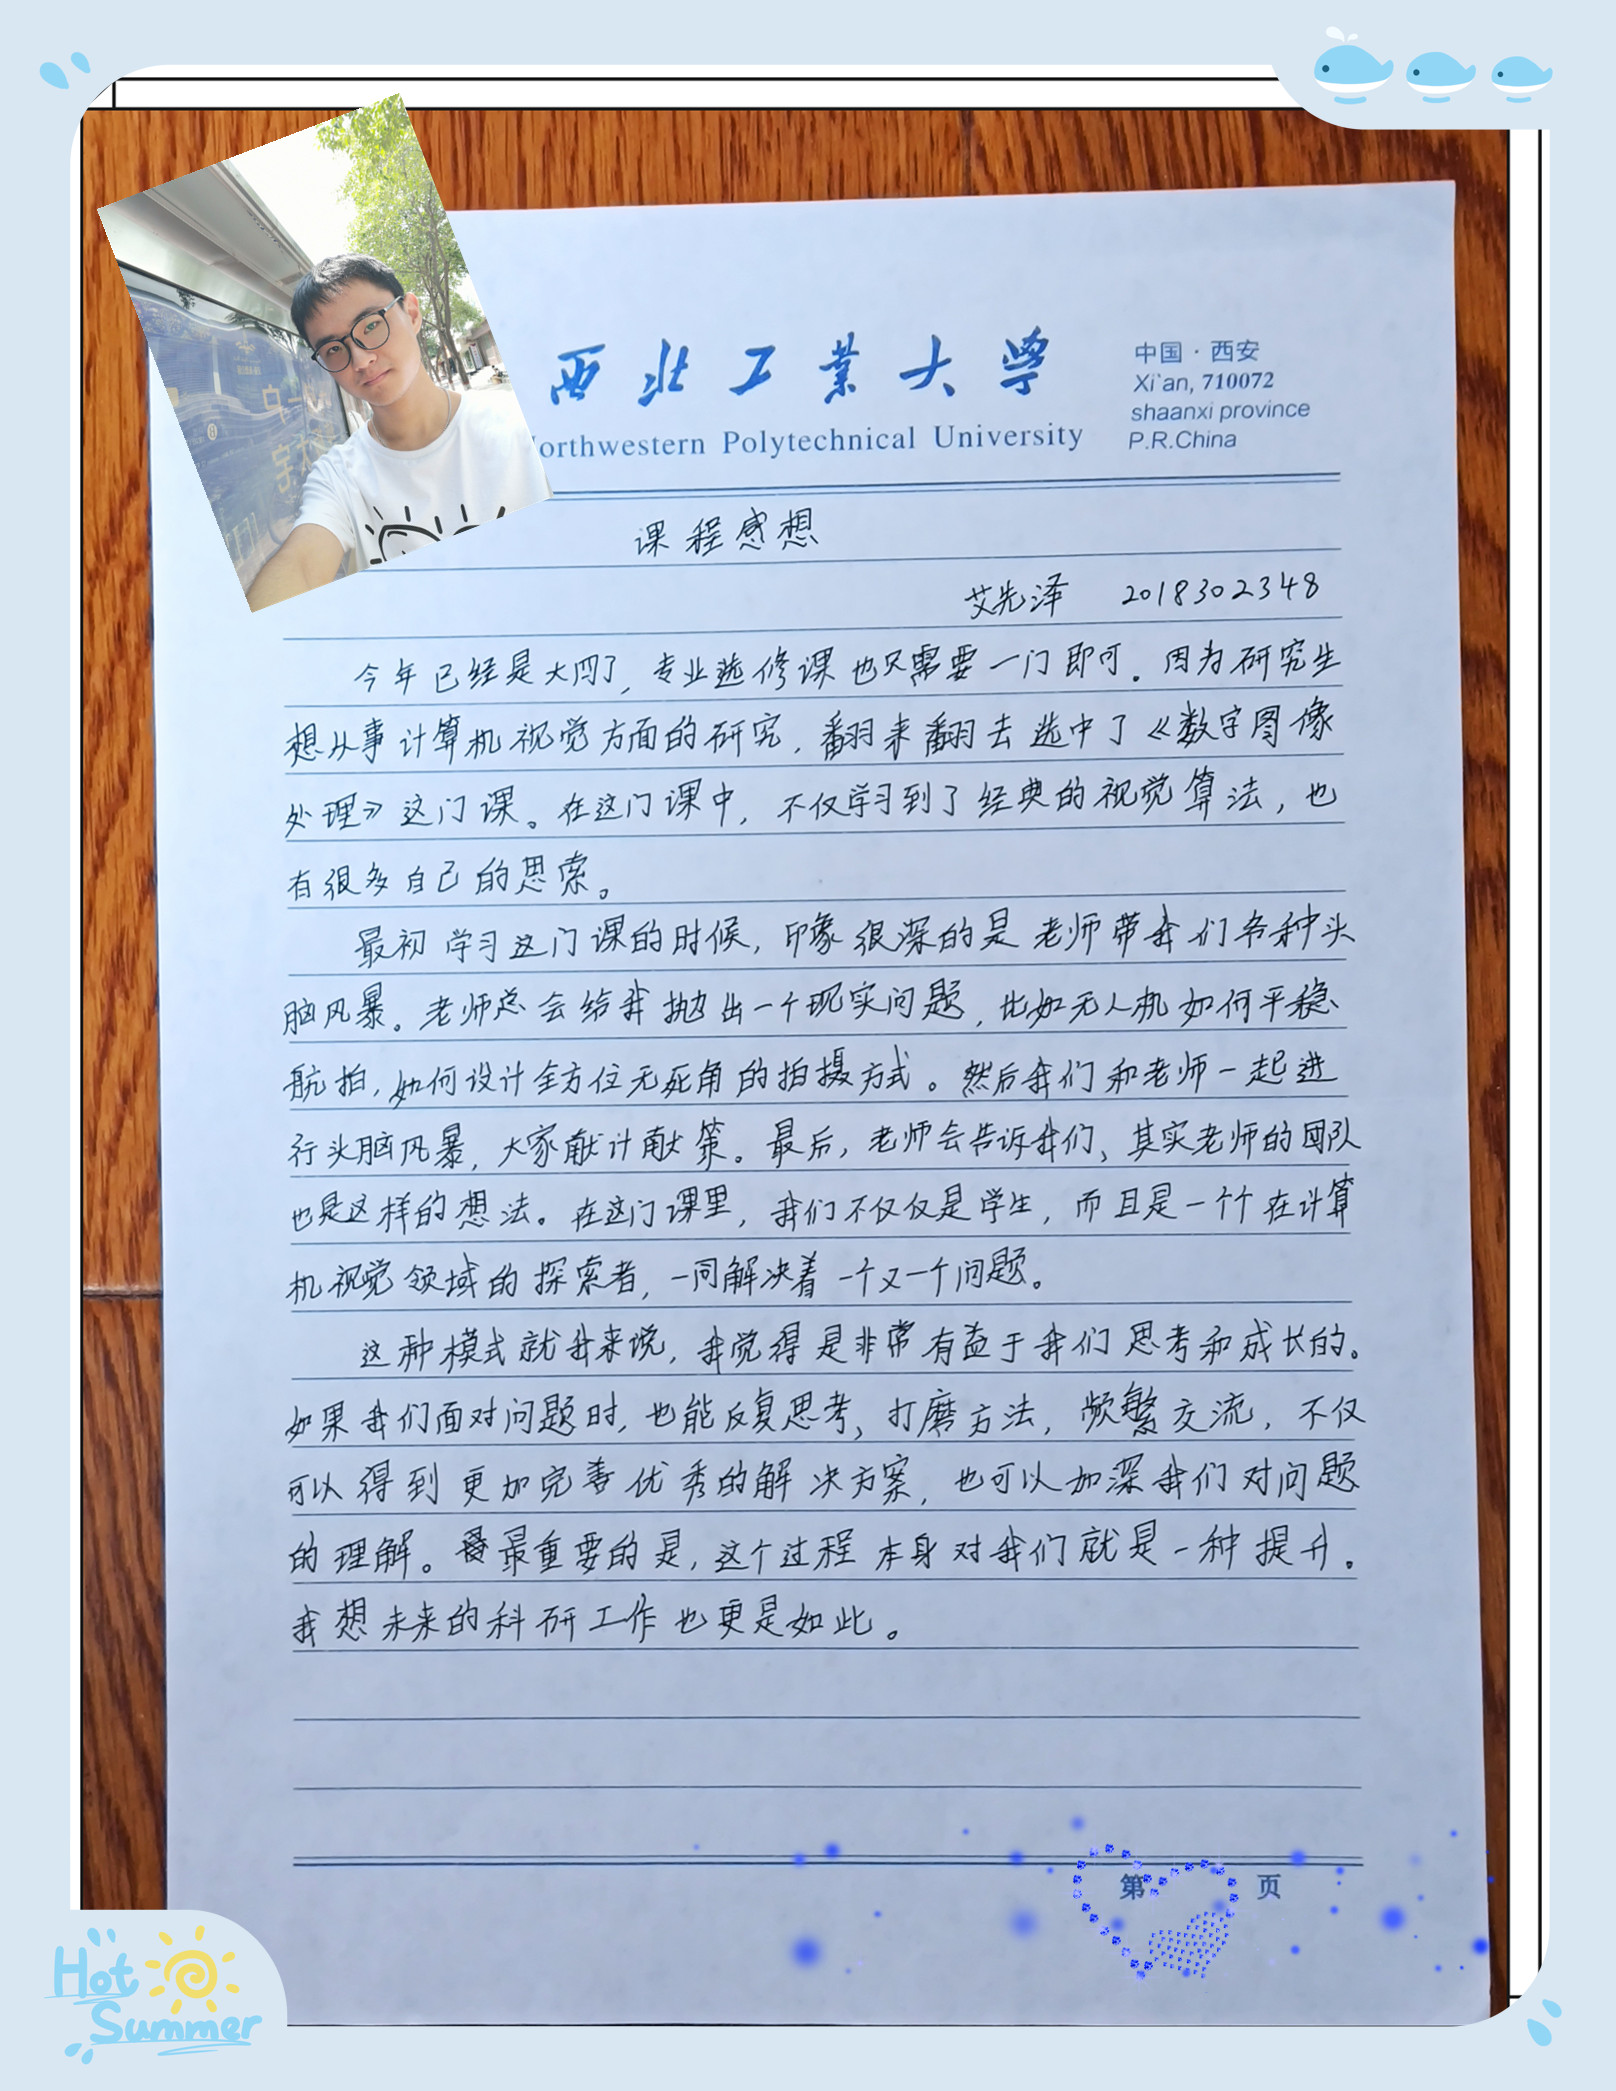 西北工业大学
orthwestern Polytechnical University
中国·西安
Xi'an, 710072
shaanxi province
P.R.China
课程感想
艾先泽 2018302348
今年已经是大四了,专业选修课也只需要一门即可.因为研究生
想从事计算机视觉方面的研究,翻来翻去选中了《数字图像
处理》这门课。在这门课中,不仅学习到了经典的视觉算法,也
有很多自己的思索。
最初学习这门课的时候,印象很深的是老师带我们各种头
脑风暴。老师总会给我抛出一个现实问题,比如无人机如何平稳
航拍,如何设计全方位无死角的拍摄方式。然后我们和老师一起进
行头脑风暴,大家献计献策。最后,老师会告诉我们、其实老师的团队
也是这样的想法。在这门课里,我们不仅仅是学生,而且是一个个在计算
机视觉领域的探索者,一同解决着一个又一个问题。
这种模式就我来说,我觉得是非常有益于我们思考和成长的。
如果我们面对问题时,也能反复思考,打磨方法,频繁交流,不仅
可以得到更加完善优秀的解决方案,也可以加深我们对问题
的理解。最重要的是,这个过程本身对我们就是一种提升.
我想未来的科研工作也更是如此。
第 页
Hot
Summer